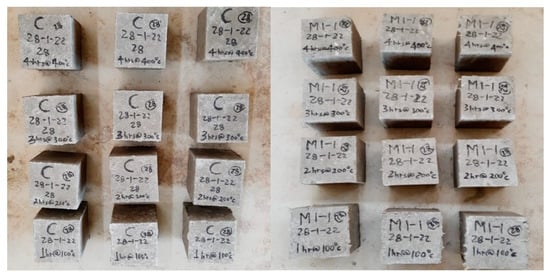 C 28
28-1-22
28
4hrs@400°C
C 28
28-1-22
28
4hrs@400°C
C 28
28-1-22
28
4hrs@400°C
M1-1
28-1-22
4hrs@400°C
M1-1
28-1-22
4hrs@400°C
M1-1
28-1-22
4hrs@400°C
C 28
28-1-22
28
3hrs@300°C
C 28
28-1-22
28
3hrs@300°C
C 28
28-1-22
28
3hrs@300°C
M1-1
28-1-22
3hrs@300°C
M1-1
28-1-22
3hrs@300°C
M1-1
28-1-22
3hrs@300°C
C 28
28-1-22
28
2hrs@200°C
C 28
28-1-22
28
2hrs@200°C
C 28
28-1-22
28
2hrs@200°C
M1-1
28-1-22
2hrs@200°C
M1-1
28-1-22
2hrs@200°C
M1-1
28-1-22
2hrs@200°C
C 28
28-1-22
1hr@100°C
C 28
28-1-22
1hr@100°C
C 28
28-1-22
1hr@100°C
M1-1
28-1-22
1hr@100°C
M1-1
28-1-22
1hr@100°C
M1-1
28-1-22
1hr@100°C